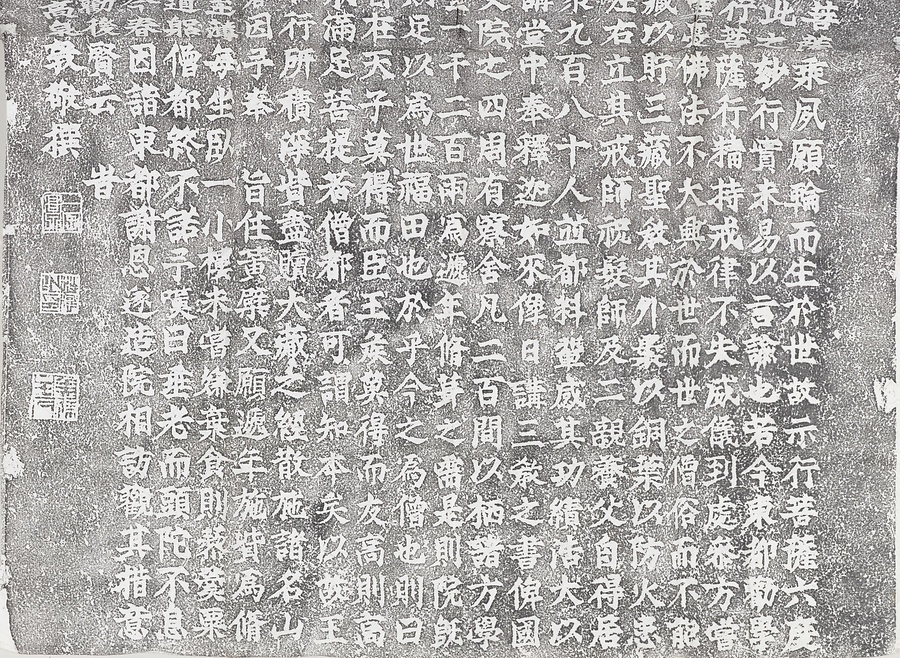 乘夙願輪而生於世故示行菩薩六度
此之妙行實未易以言論也若今東都勸學
行菩薩行精持戒律不失威儀到處參方當
佛法不大興於世而世之僧俗而不能
藏以貯三藏聖教其外裹以銅葉以防火患
左右立其戒師祝髮師及二親養父自得居
衆九百八十人並都料輩感其功績浩大以
講堂中奉釋迦如來像日講三藏之書俾國
文院之四周有寮舍凡二百間以栖諸方學
一千二百兩為遞年脩葺之需是則院旣
則足以為世福田也於乎今之為僧也則曰
在天子莫得而臣王侯莫得而友高則高
滿足菩提若僧都者可謂知本矣以彼王
行所積貲盡贖大藏之經散施諸名山
因予奉
旨住黃檗又願遞年施貲為脩
每坐臥一小榻未嘗嫌棄食則藜羹粟
僧都終不語予嘆曰垂老而頭陀不息
春因詣東都謝恩遂造院相訪觀其措意
後賢云 旹
敬撰